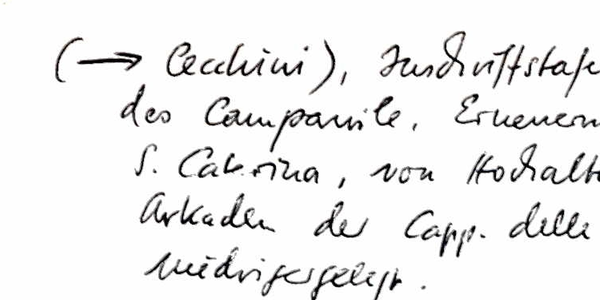 (→ Cecchini), Inschriftstafe
des Campanile, Erneuern
S. Caterina, von Hochalt
Arkaden der Capp. delle
niedrigergelegt.